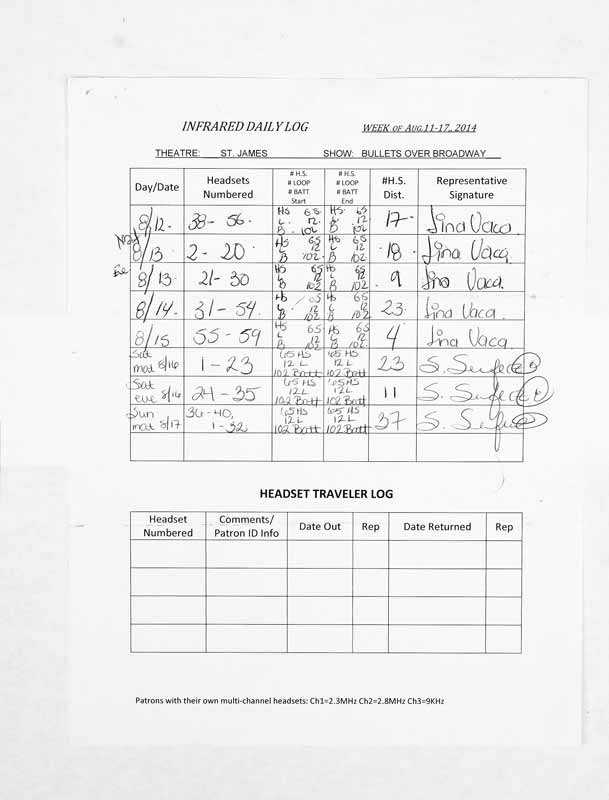 INFRARED DAILY LOG WEEK OF AUG.11-17, 2014
THEATRE: ST. JAMES SHOW: BULLETS OVER BROADWAY
Day/Date Headsets Numbered # H.S. # LOOP # BATT Start # H.S. # LOOP # BATT End #H.S. Dist. Representative Signature
8/12. 38 - 56. HS 65. L. 12. B. 102 HS. 65 L 12. B 102 17. Lina Vaca.
Mat 8/13 2 - 20. HS 65 L 12 B 102. HS 65 L 12 B 102. 18. Lina Vaca.
Eve 8/13. 21 - 30 HS 65 L 12 B 102 HS 65 L 12 B 102. 9 Lina Vaca.
8/14. 31 - 54. HS 65 L 12 B 102 HS 65 L 12 B 102 23. Lina Vaca.
8/15 55 - 59 HS 65 L 12 B 102 HS 65 L 12 B 102. 4 Lina Vaca.
Sat mat 8/16 1 - 23 65 HS 12 L 102 Batt 65 HS 12 L 102 Batt 23 S.
Sat eve 8/16 24 - 35 65 HS 12 L 102 Batt 65 HS 12 L 102 Batt 11 S.
Sun mat 8/17 36-40, 1-32 65 HS 12 L 102 Batt 65 HS 12 L 102 Batt 37 S.
HEADSET TRAVELER LOG
Headset Numbered Comments/ Patron ID Info Date Out Rep Date Returned Rep
Patrons with their own multi-channel headsets: Ch1=2.3MHz Ch2=2.8MHz Ch3=9KHz